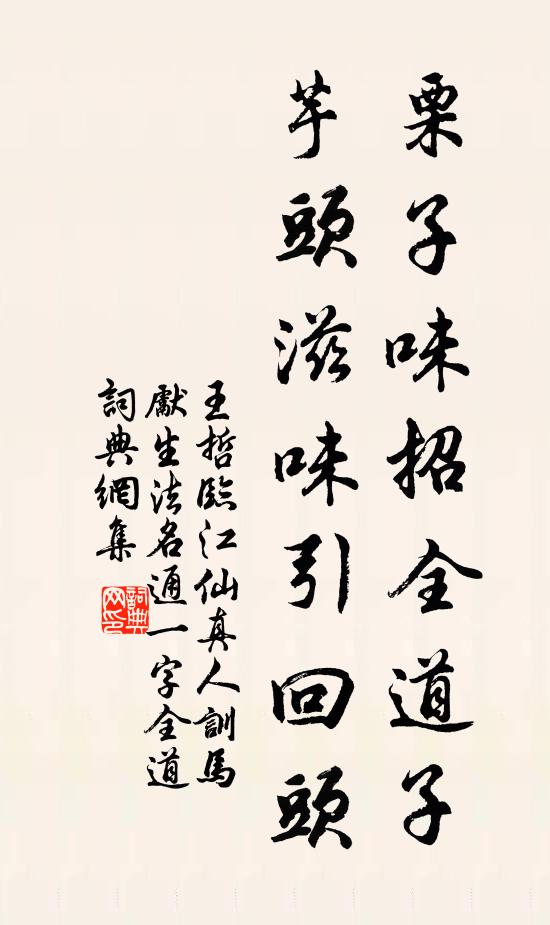 栗子味招全道子
芋頭滋味引回頭
王哲臨江仙真人訓馬
獻生法名通一字全道
詞典網集
詞典
网印